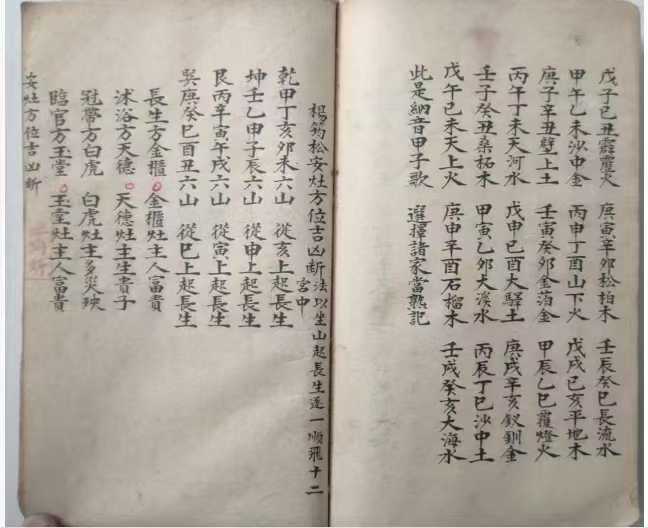 戊子己丑霹靂火 庚寅辛卯松柏木 壬辰癸巳長流水
甲午乙未沙中金 丙申丁酉山下火 戊戌己亥平地木
庚子辛丑壁上土 壬寅癸卯金箔金 甲辰乙巳覆燈火
丙午丁未天河水 戊申己酉大驛土 庚戌辛亥釵釧金
壬子癸丑桑柘木 甲寅乙卯大溪水 丙辰丁巳沙中土
戊午己未天上火 庚申辛酉石榴木 壬戌癸亥大海水
此是納音甲子歌 選擇諸家當熟記
楊筠松安灶方位吉凶斷法以生山起長生逐一順飛十二
宮中
乾甲丁亥卯未六山 從亥上起長生
坤壬乙申子辰六山 從申上起長生
艮丙辛寅午戌六山 從寅上起長生
巽庚癸巳酉丑六山 從巳上起長生
長生方金櫃 金櫃灶主人富貴
沐浴方天德 天德灶主生貴子
冠帶方白虎 白虎灶主多災殃
臨官方玉堂 玉堂灶主人富貴
安灶方位吉凶斷